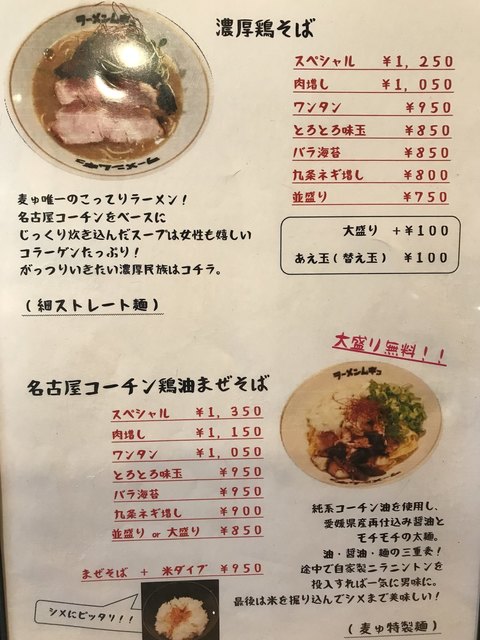 ラーメンムギュ
ラーメンムギュ
濃厚鶏そば
スペシャル ¥1,250
肉増し ¥1,050
ワンタン ¥950
とろとろ味玉 ¥850
バラ海苔 ¥850
九条ネギ増し ¥800
並盛り ¥750
麦ゅ唯一のこってりラーメン!
名古屋コーチンをベースに
じっくり炊き込んだスープは女性も嬉しい
コラーゲンたっぷり!
がっつりいきたい濃厚民族はコチラ。
(細ストレート麺)
大盛り +¥100
あえ玉(替え玉) ¥100
大盛り無料!!
ラーメンムギュ
名古屋コーチン鶏油まぜそば
スペシャル ¥1,350
肉増し ¥1,150
ワンタン ¥1,050
とろとろ味玉 ¥950
バラ海苔 ¥950
九条ネギ増し ¥900
並盛り or 大盛り ¥850
まぜそば + 米ダイブ ¥950
シメにピッタリ!!
純系コーチン油を使用し、
愛媛県産再仕込み醤油と
モチモチの太麺。
油・醤油・麺の三重奏!
途中で自家製ニラニントンを
投入すれば一気に男味に。
最後は米を掘り込んでシメまで美味しい!
(麦ゅ特製麺)